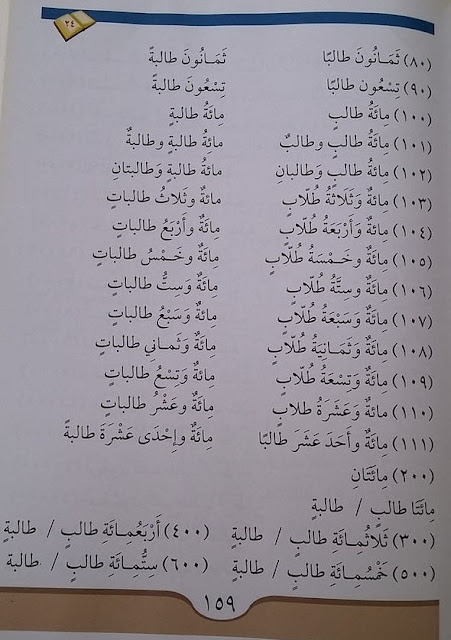 ٢٤
(٨٠) ثَمَـانُونَ طالبًا ثَمَـانُونَ طالبةً
(٩٠) تِسْعُون طالبًا تِسْعُونَ طالبةً
(١٠٠) مِائَةُ طالبٍ مِائَةُ طالبةٍ
(١٠١) مِائَةُ طالبٍ وطالبٌ مِائَةُ طالبةٍ وطالبةٌ
(١٠٢) مِائَةُ طالبٍ وَطالبانِ مِائَةُ طالبةٍ وَطالبتانِ
(١٠٣) مِائَةٌ وَثَلَاثَةُ طُلّابٍ مِائَةٌ وَثَلاثُ طالباتٍ
(١٠٤) مِائَةٌ وَأَرْبَعَةُ طُلّابٍ مِائَةٌ وَأَرْبَعُ طالباتٍ
(١٠٥) مِائَةٌ وخَـمْسَةُ طُلّابٍ مِائَةٌ وخَـمْسُ طالباتٍ
(١٠٦) مِائَةٌ وسِتَّةُ طُلّابٍ مِائَةٌ وَسِتُّ طالباتٍ
(١٠٧) مِائَةٌ وَسَبْعَةُ طُلّابٍ مِائَةٌ وَسَبْعُ طالباتٍ
(١٠٨) مِائَةٌ وَثَمَـانِيَةُ طُلّابٍ مِائَةٌ وَثَمـانِي طالباتٍ
(١٠٩) مِائَةٌ وَتِسْعَةُ طُلّابٍ مِائَةٌ وَتِسْعُ طالباتٍ
(١١٠) مِائَةٌ وَعَشَرَةُ طلابٍ مِائَةٌ وعَشْرُ طالباتٍ
(١١١) مِائَةٌ وأَحَدَ عَشَرَ طالبًا مِائَةٌ وإِحْدَى عَشْرَةَ طالبةً
(٢٠٠) مِائَتَانِ
مِائَتَا طالبٍ / طالبةٍ
(٣٠٠) ثَلاثُمِـائَةِ طالبٍ / طالبةٍ (٤٠٠) أَرْبَعُمِـائَةِ طالبٍ / طالبةٍ
(٥٠٠) خَمْسُمِـائَةِ طالبٍ / طالبةٍ (٦٠٠) سِتُّمِـائَةِ طالبٍ / طالبة
١٥٩